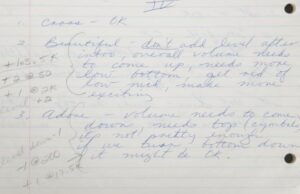 IV
1. Cross - OK
2. Beautiful - don't add level after
intro, overall volume needs
to come up, needs more
low bottom, get rid of
low mid, make more
exciting
+ 2 @ 50
+ 1 @ 2K
3. Adore - volume needs to come
down, needs top (cymbals
it's not pretty enough
if we turn bottom down
it might be OK.